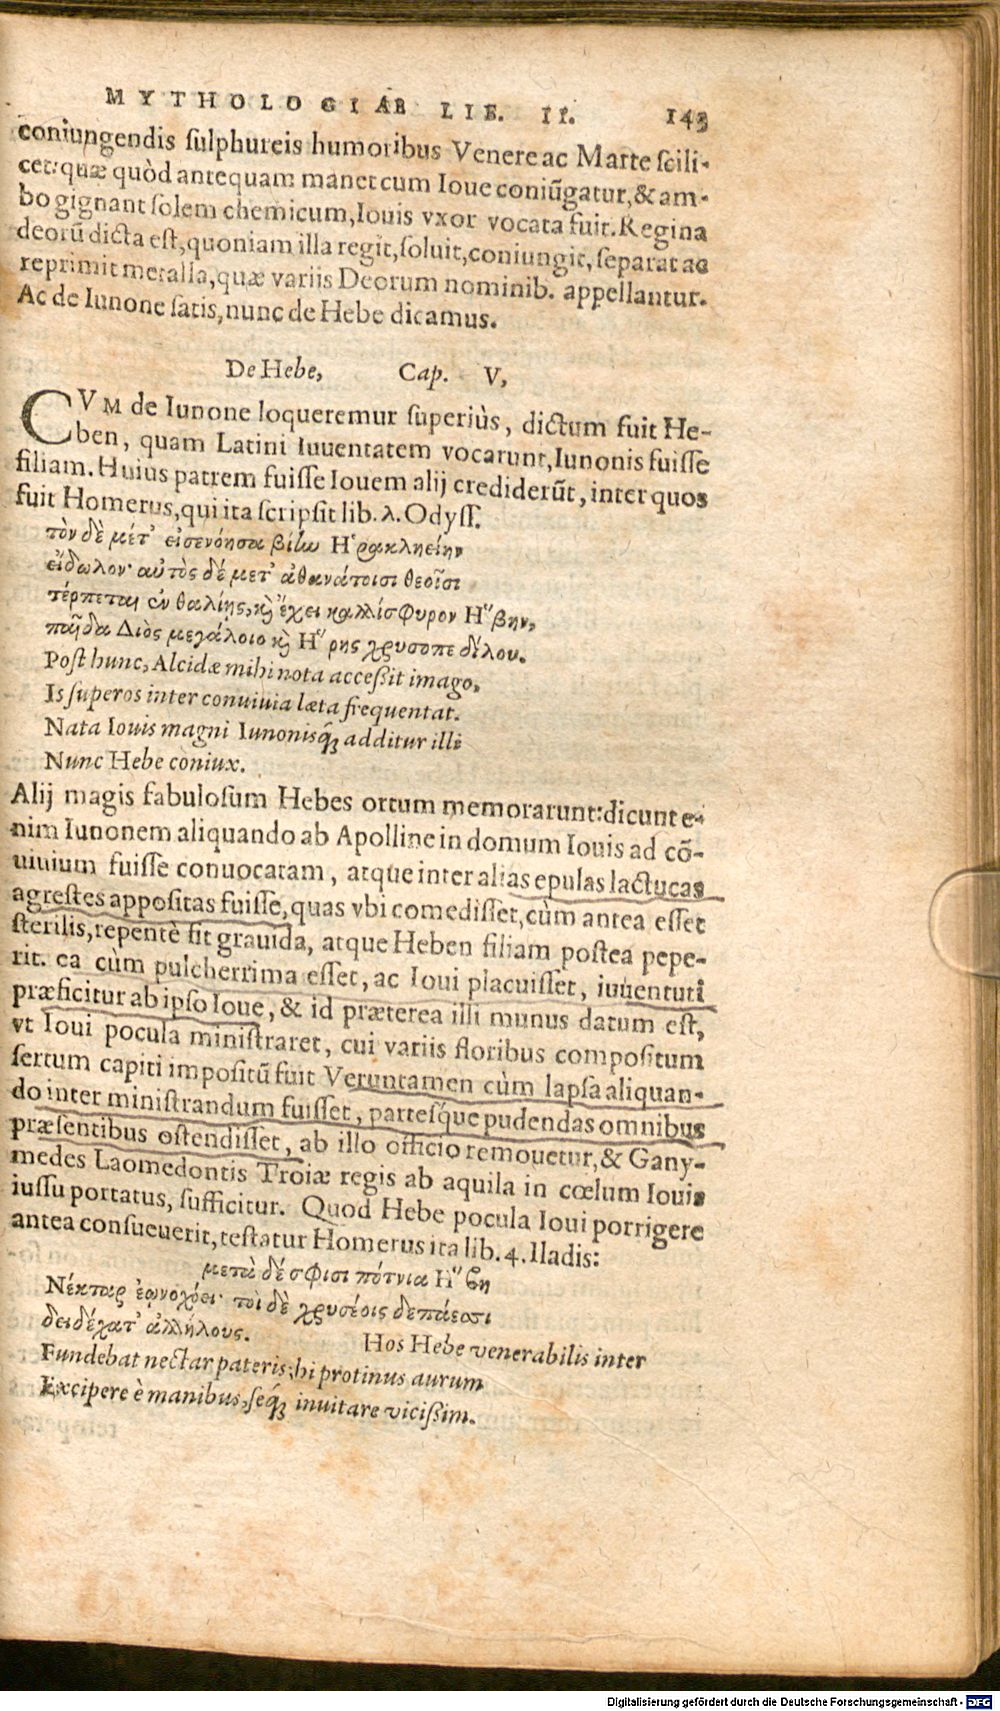 MYTHOLOGIAE LIB. II. 143
coniungendis sulphureis humoribus Venere ac Marte scili-
cet: quæ quòd antequam manet cum Ioue coniũgatur, & am-
bo gignant solem chemicum, Iouis vxor vocata fuit. Regina
deorũ dicta est, quoniam illa regit, soluit, coniungit, separat ac
reprimit metalla, quæ variis Deorum nominib. appellantur.
Ac de Iunone satis, nunc de Hebe dicamus.
De Hebe, Cap. V,
CVM de Iunone loqueremur superiùs, dictum fuit He-
ben, quam Latini Iuuentatem vocarunt, Iunonis fuisse
filiam. Huius patrem fuisse Iouem alij crediderũt, inter quos
fuit Homerus, qui ita scripsit lib. λ. Odyss.
τὸν δὲ μέτ' εἰσενόησα βίίω Ἡρακληείην
εἴδωλον· αὐτὸς δέ μετ' ἀθανάτοισι θεοῖσι
τέρπεται ἐν θαλίῃς, καὶ ἔχει καλλίσφυρον Ἥβην,
παῖδα Διὸς μεγάλοιο καὶ Ἥρης χρυσοπεδίλου.
Post hunc, Alcidæ mihi nota accessit imago,
Is superos inter conuiuia læta frequentat.
Nata Iouis magni Iunonisq́; additur illi
Nunc Hebe coniux.
Alij magis fabulosum Hebes ortum memorarunt: dicunt e-
nim Iunonem aliquando ab Apolline in domum Iouis ad cõ-
uiuium fuisse conuocatam, atque inter alias epulas lactucas
agrestes appositas fuisse, quas vbi comedisset, cùm antea esset
sterilis, repentè fit grauida, atque Heben filiam postea pepe-
rit. ea cùm pulcherrima esset, ac Ioui placuisset, iuuentuti
præficitur ab ipso Ioue, & id præterea illi munus datum est,
vt Ioui pocula ministraret, cui variis floribus compositum
sertum capiti impositũ fuit Veruntamen cùm lapsa aliquan-
do inter ministrandum fuisset, partesq́ue pudendas omnibus
præsentibus ostendisset, ab illo officio remouetur, & Gany-
medes Laomedontis Troiæ regis ab aquila in cœlum Iouis
iussu portatus, sufficitur. Quod Hebe pocula Ioui porrigere
antea consueuerit, testatur Homerus ita lib. 4. Iliadis:
μετὰ δέ σφισι πότνια Ἥβη
Νέκταρ ἐῳνοχόει· τοὶ δὲ χρυσέοις δεπάεσσι
δειδέχατ' ἀλλήλους.
Hos Hebe venerabilis inter
Fundebat nectar pateris; hi protinus aurum
Excipere è manibus, seq́; inuitare vicissim.
Digitalisierung gefördert durch die Deutsche Forschungsgemeinschaft - DFG